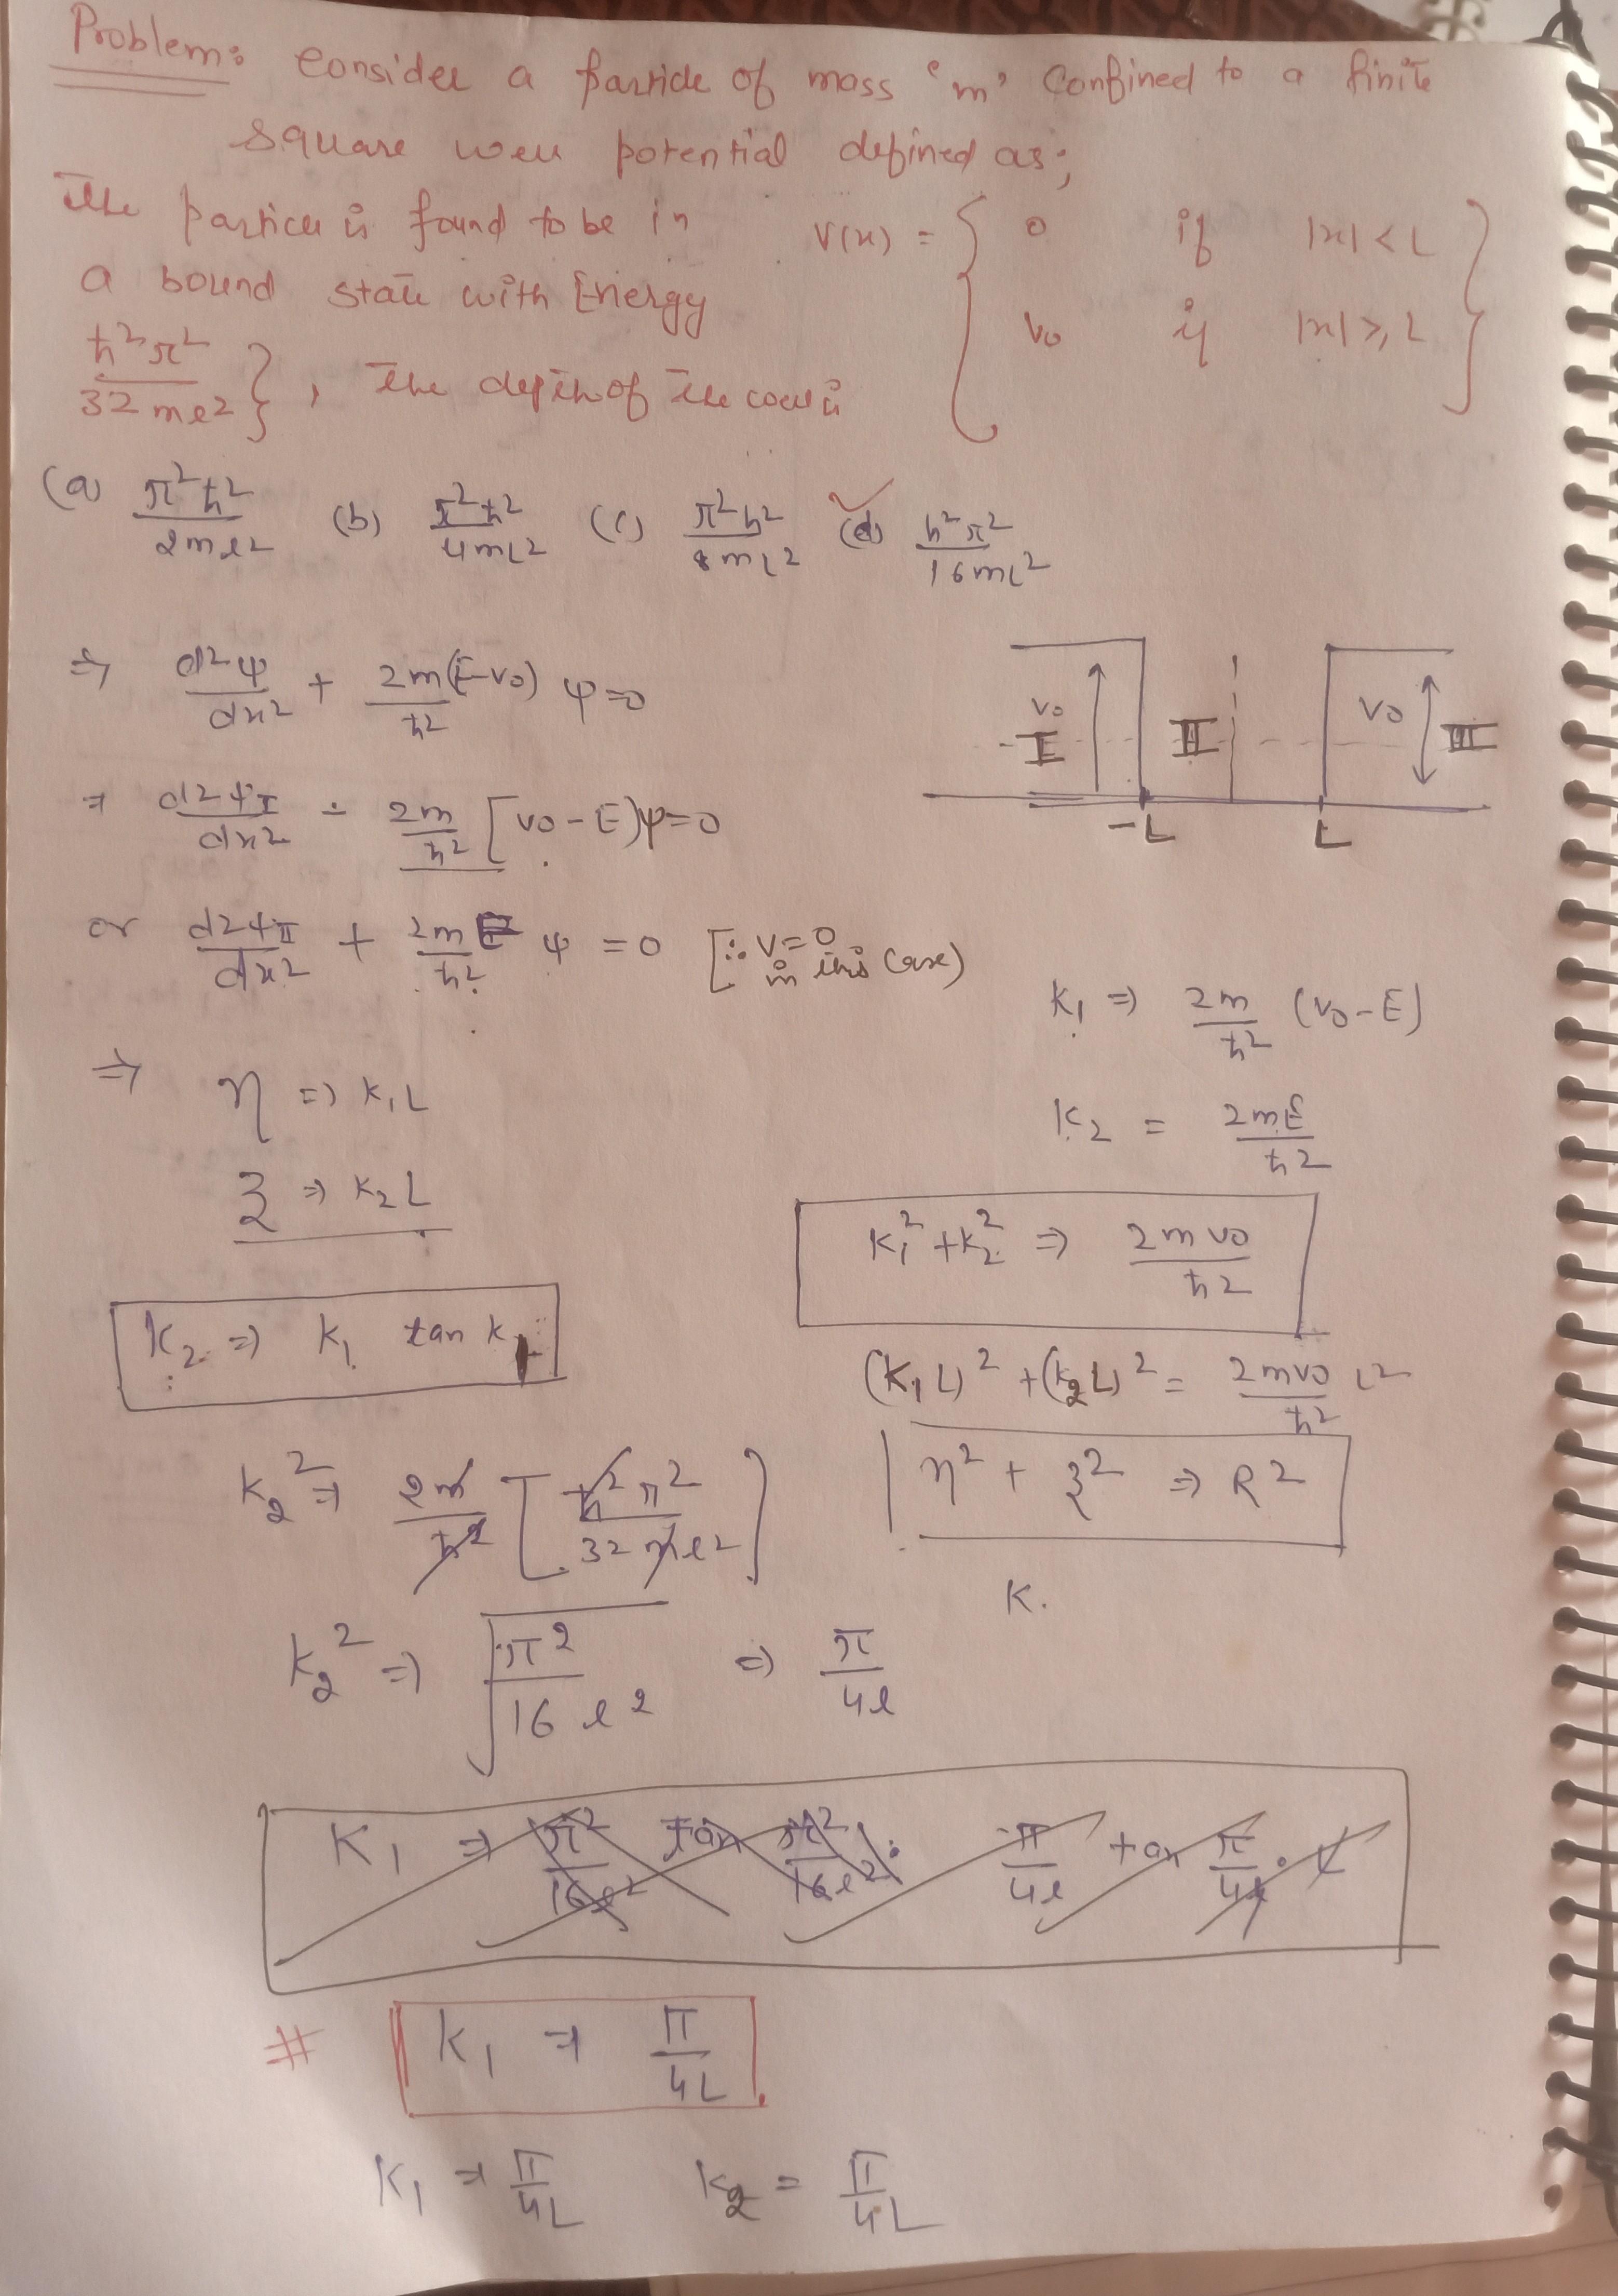 Problem: Consider a particle of mass 'm' Confined to a finite
square well potential defined as;
The particle is found to be in
a bound state with Energy
ħ²π² / 32 ml² }, The depth of the well is
V(x) = { 0 if |x| < L
V0 if |x| ≥ L }
(a) π²ħ² / 2ml² (b) π²ħ² / 4mL² (c) π²ħ² / 8mL² ✓(d) ħ²π² / 16mL²
⇒ d²ψ/dx² + 2m(E-V0)/ħ² ψ=0
⇒ d²ψI/dx² - 2m/ħ² [V0-E)ψ=0
or d²ψII/dx² + 2mE/ħ² ψ = 0 [∵ V=0 in this case)
V0 I II V0 III
-L L
K1 ⇒ 2m/ħ² (V0-E)
K2 = 2mE/ħ²
⇒ η ⇒ K1L
ξ ⇒ K2L
K1² + K2² ⇒ 2mV0/ħ²
K2 ⇒ K1 tan K
(K1L)² + (K2L)² = 2mV0/ħ² L²
η² + ξ² ⇒ R²
K2² ⇒ 2m/ħ² [ħ²π² / 32ml²]
K.
K2² ⇒ √(π² / 16l²) ⇒ π/4l
K1 ⇒ π²/16l² tan π²/16l² . π/4l tan π/4l . L
# K1 ⇒ π/4L.
K1 ⇒ π/4L K2 = π/4L